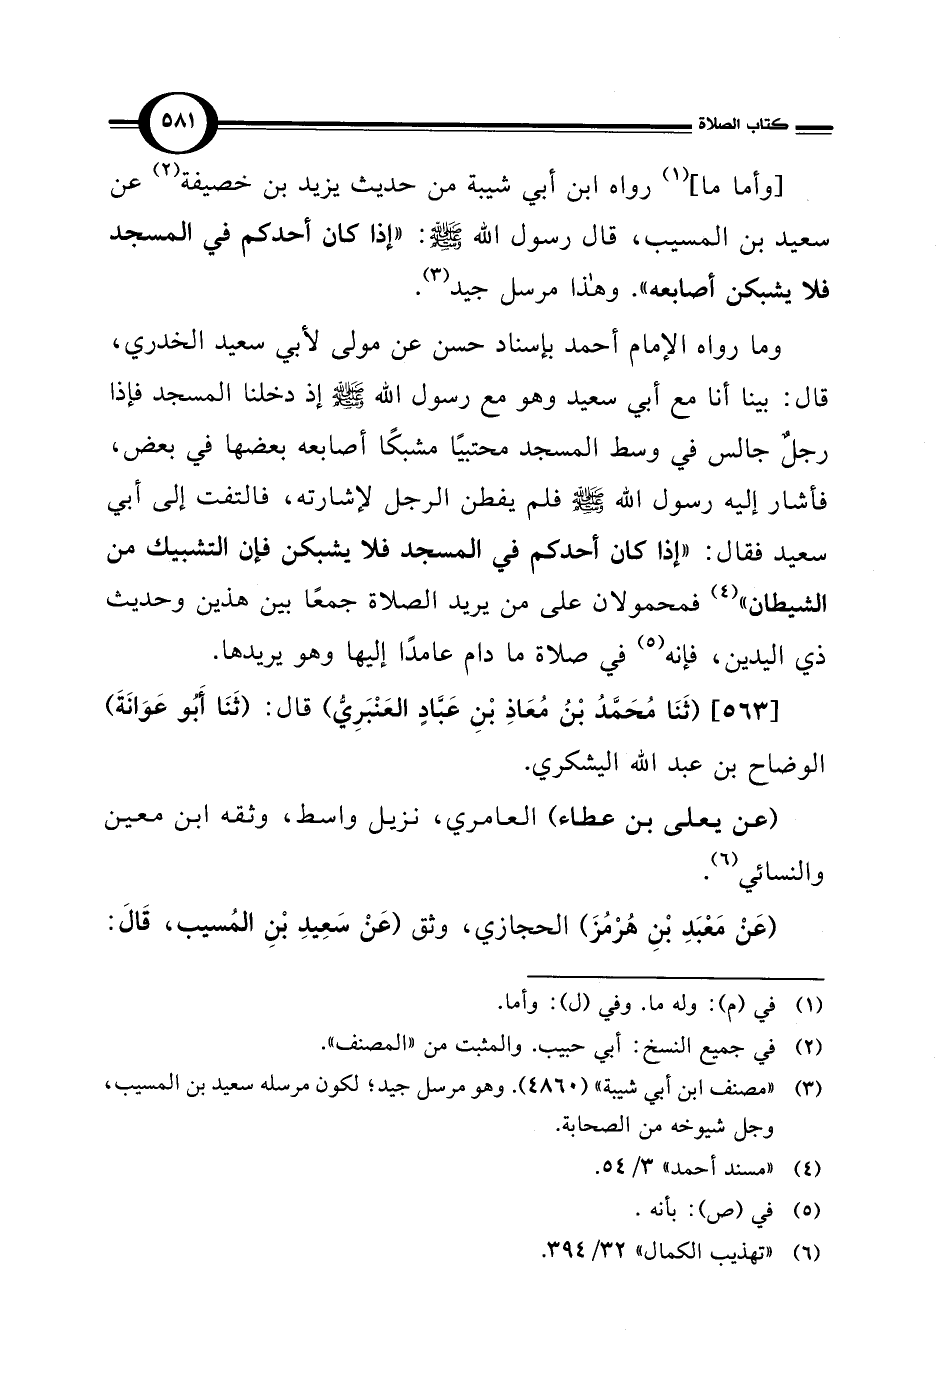 كتاب الصلاة ٥٨١
[وأما ما](١) رواه ابن أبي شيبة من حديث يزيد بن خصيفة(٢) عن
سعيد بن المسيب، قال رسول الله ﷺ: «إذا كان أحدكم في المسجد
فلا يشبكن أصابعه». وهذا مرسل جيد(٣).
وما رواه الإمام أحمد بإسناد حسن عن مولى لأبي سعيد الخدري،
قال: بينا أنا مع أبي سعيد وهو مع رسول الله ﷺ إذ دخلنا المسجد فإذا
رجلٌ جالس في وسط المسجد محتبيًا مشبكًا أصابعه بعضها في بعض،
فأشار إليه رسول الله ﷺ فلم يفطن الرجل لإشارته، فالتفت إلى أبي
سعيد فقال: «إذا كان أحدكم في المسجد فلا يشبكن فإن التشبيك من
الشيطان»(٤) فمحمولان على من يريد الصلاة جمعًا بين هذين وحديث
ذي اليدين، فإنه(٥) في صلاة ما دام عامدًا إليها وهو يريدها.
[٥٦٣] (ثَنَا مُحَمَّدُ بْنُ مُعَاذِ بْنِ عَبَّادٍ العَنْبَرِيُّ) قال: (ثَنَا أَبُو عَوَانَةَ)
الوضاح بن عبد الله اليشكري.
(عن يعلى بن عطاء) العامري، نزيل واسط، وثقه ابن معين
والنسائي(٦).
(عَنْ مَعْبَدِ بْنِ هُرْمُزَ) الحجازي، وثق (عَنْ سَعِيدِ بْنِ المُسيب، قَالَ:
(١) في (م): وله ما. وفي (ل): وأما.
(٢) في جميع النسخ: أبي حبيب. والمثبت من «المصنف».
(٣) «مصنف ابن أبي شيبة» (٤٨٦٠). وهو مرسل جيد؛ لكون مرسله سعيد بن المسيب،
وجل شيوخه من الصحابة.
(٤) «مسند أحمد» ٣/ ٥٤.
(٥) في (ص): بأنه .
(٦) «تهذيب الكمال» ٣٢/ ٣٩٤.